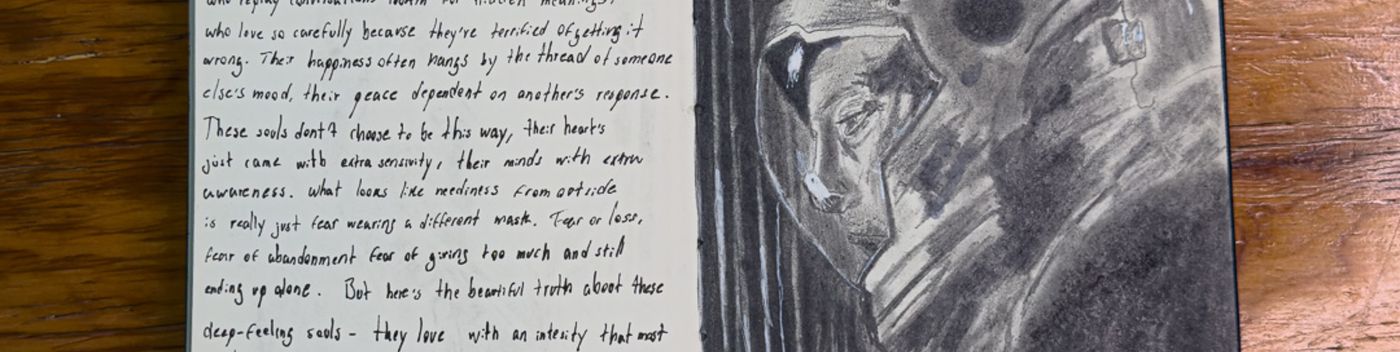 who replay conversations for hidden meanings,
who love so carefully because they're terrified of getting it
wrong. Their happiness often hangs by the thread of someone
else's mood, their peace dependent on another's response.
These souls don't choose to be this way, their heart's
just came with extra sensivity, their minds with extra
awareness. What looks like neediness from outside
is really just fear wearing a different mask. Fear or loss,
fear of abandonment fear of giving too much and still
ending up alone. But here's the beautiful truth about these
deep-feeling souls - they love with an intesity that most